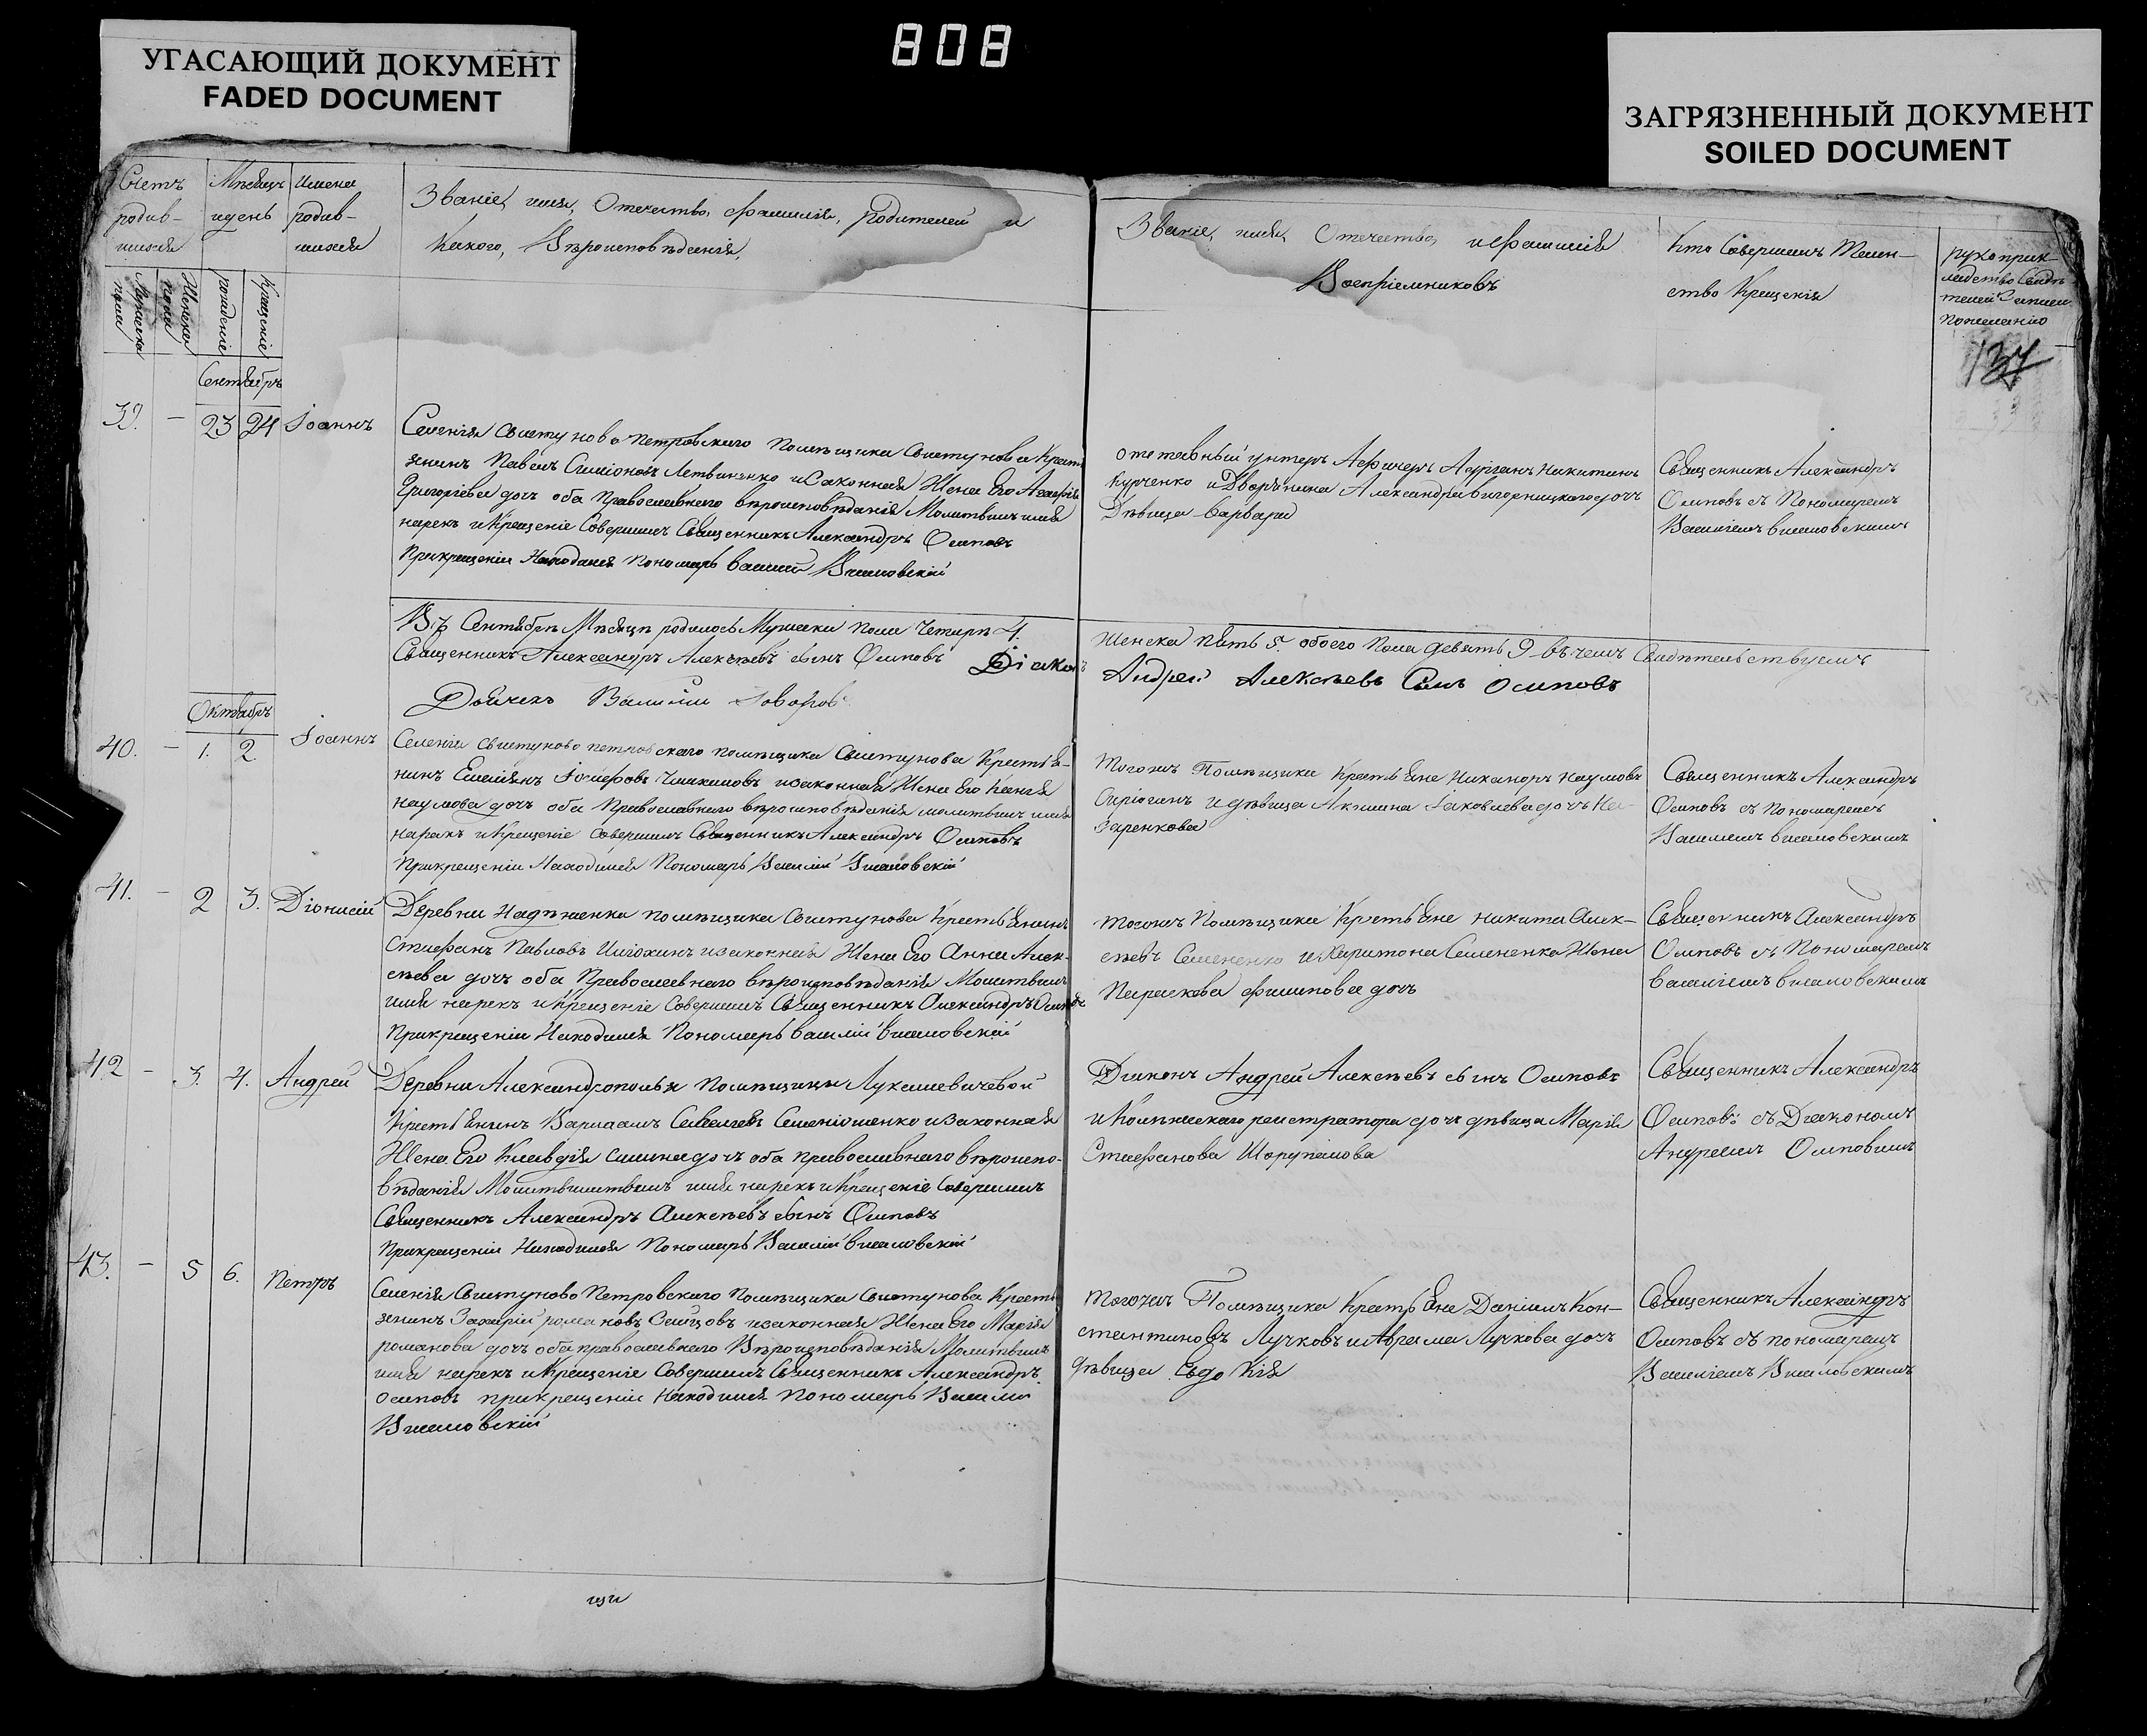 808
УГАСАЮЩИЙ ДОКУМЕНТ
FADED DOCUMENT
ЗАГРЯЗНЕННЫЙ ДОКУМЕНТ
SOILED DOCUMENT
Счетъ родив-шихся
Мѣсяцъ и день
Имена родив-шихся
Званіе, имя, Отечество, фамилія, родителей и
Какого, Вѣроисповѣденія,
Званіе, имя, Отечество, и фамилія
Воспріемниковъ
Кто Совершилъ Таин-
ство Крещенія
рукоприк-
ладство Свидѣ-
телей
пожеланію
137
Мужеска пола
Женска пола
рожденіе
Крещеніе
Сентябръ
39. - 23 24 Іоаннъ
Селенія Свистуново петровскаго помѣщика Свистунова Кресть
янинъ Павелъ Симіоновъ Летвиненко и Законная Жена Его Агафія
Григорієва дочъ оба Православнаго вѣроисповѣданія Молитвилъ имя
нарекъ и Крещеніе Совершилъ Священникъ Александръ Осиповъ
Прикрещеніи Находился пономарь василій
отставный унтеръ Афицеръ Никитинъ
Курченко и Дворянина Александра дочъ
Дѣвица варвара
Священникъ Александръ
Осиповъ съ Пономаремъ
Василіемъ
Въ Сентябрѣ Мѣсяцѣ родилось Мужеска пола Четыри 4.
Женска пять 5. обоего пола девять 9 въ чемъ Свидѣтельствуемъ
Священникъ Александръ Алексѣевъ сынъ Осиповъ Діаконъ
Андрей Алексѣевъ Сынъ Осиповъ
Дьячекъ Василій
Октябръ
40. - 1. 2. Іоаннъ
Селенія свистуново петровскаго помѣщика Свистунова Крестья-
нинъ Емельянъ Іосифовъ и законная Жена Его Ксенія
наумова дочъ оба Православнаго вѣроисповѣданія молитвилъ имя
нарекъ и Крещеніе совершилъ Священникъ Александръ Осиповъ
Прикрещеніи Находился Пономарь Василій
Тогожъ Помѣщика Крестьяне Никаноръ наумовъ
и дѣвица Акилина Іаковлева дочъ На-
заренкова
Священникъ Александръ
Осиповъ съ пономаремъ
Василіемъ
41. - 2 3. Діонисій
Деревни Надѣженки помѣщика Свистунова Крестьянинъ
Стефанъ Павловъ и законная Жена Его Анна Алек-
сѣева дочъ оба Православнаго вѣроисповѣданія Молитвилъ
имя нарекъ и Крещеніе Совершилъ Священникъ Александръ Осиповъ
Прикрещеніи Находился Пономарь василій
тогожъ Помѣщика Крестьяне никита Алек-
сѣевъ Семененко и Харитона Семененка Жена
Параскева филипова дочъ
Священникъ Александръ
Осиповъ съ Пономаремъ
василіемъ
42 - 3. 4. Андрей
Деревни Александрополья помѣщицы Лукашевичевой
Крестьянинъ Варлаамъ Савелиевъ Семеніошенко и Законная
Жена Его Клавдія дочъ оба православнаго вѣроиспо-
вѣданія имя нарекъ и Крещеніе Совершилъ
Священникъ Александръ Алексѣевъ сынъ Осиповъ
Прикрещеніи Находился Пономарь Василій
Діаконъ Андрей Алексѣевъ сынъ Осиповъ
и Колѣжскаго реистратора дочъ дѣвица Марія
Стефанова
Священникъ Александръ
Осиповъ съ Діакономъ
Андреемъ Осиповымъ
43. - 5 6. Петръ
Селенія Свистуново Петровскаго Помѣщика Свистунова Кресть
янинъ Захарій романовъ и законная Жена Его Марія
романова дочъ оба православнаго Вѣроисповѣданія Молитвилъ
имя нарекъ и Крещеніе Совершилъ Священникъ Александръ
Осиповъ прикрещеніи Находился пономарь Василій
Тогожъ Помѣщика Крестьяне Даніилъ Кон-
стантиновъ Лучковъ и Аврама Лучкова дочъ
дѣвица Евдокія
Священникъ Александръ
Осиповъ съ пономаремъ
Василіемъ